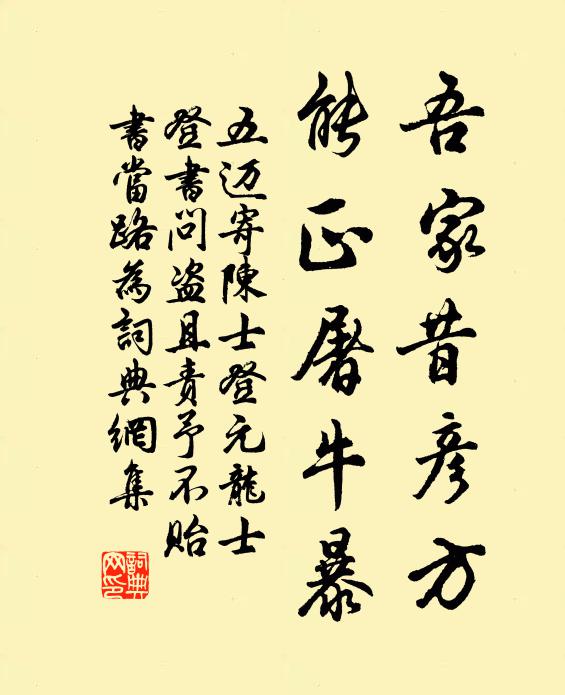 吾家昔彦方
能正屠牛暴
五迈寄陳士登元龍士
登書问盗且责予不贻
書當路為詞典網集
詞典
网印